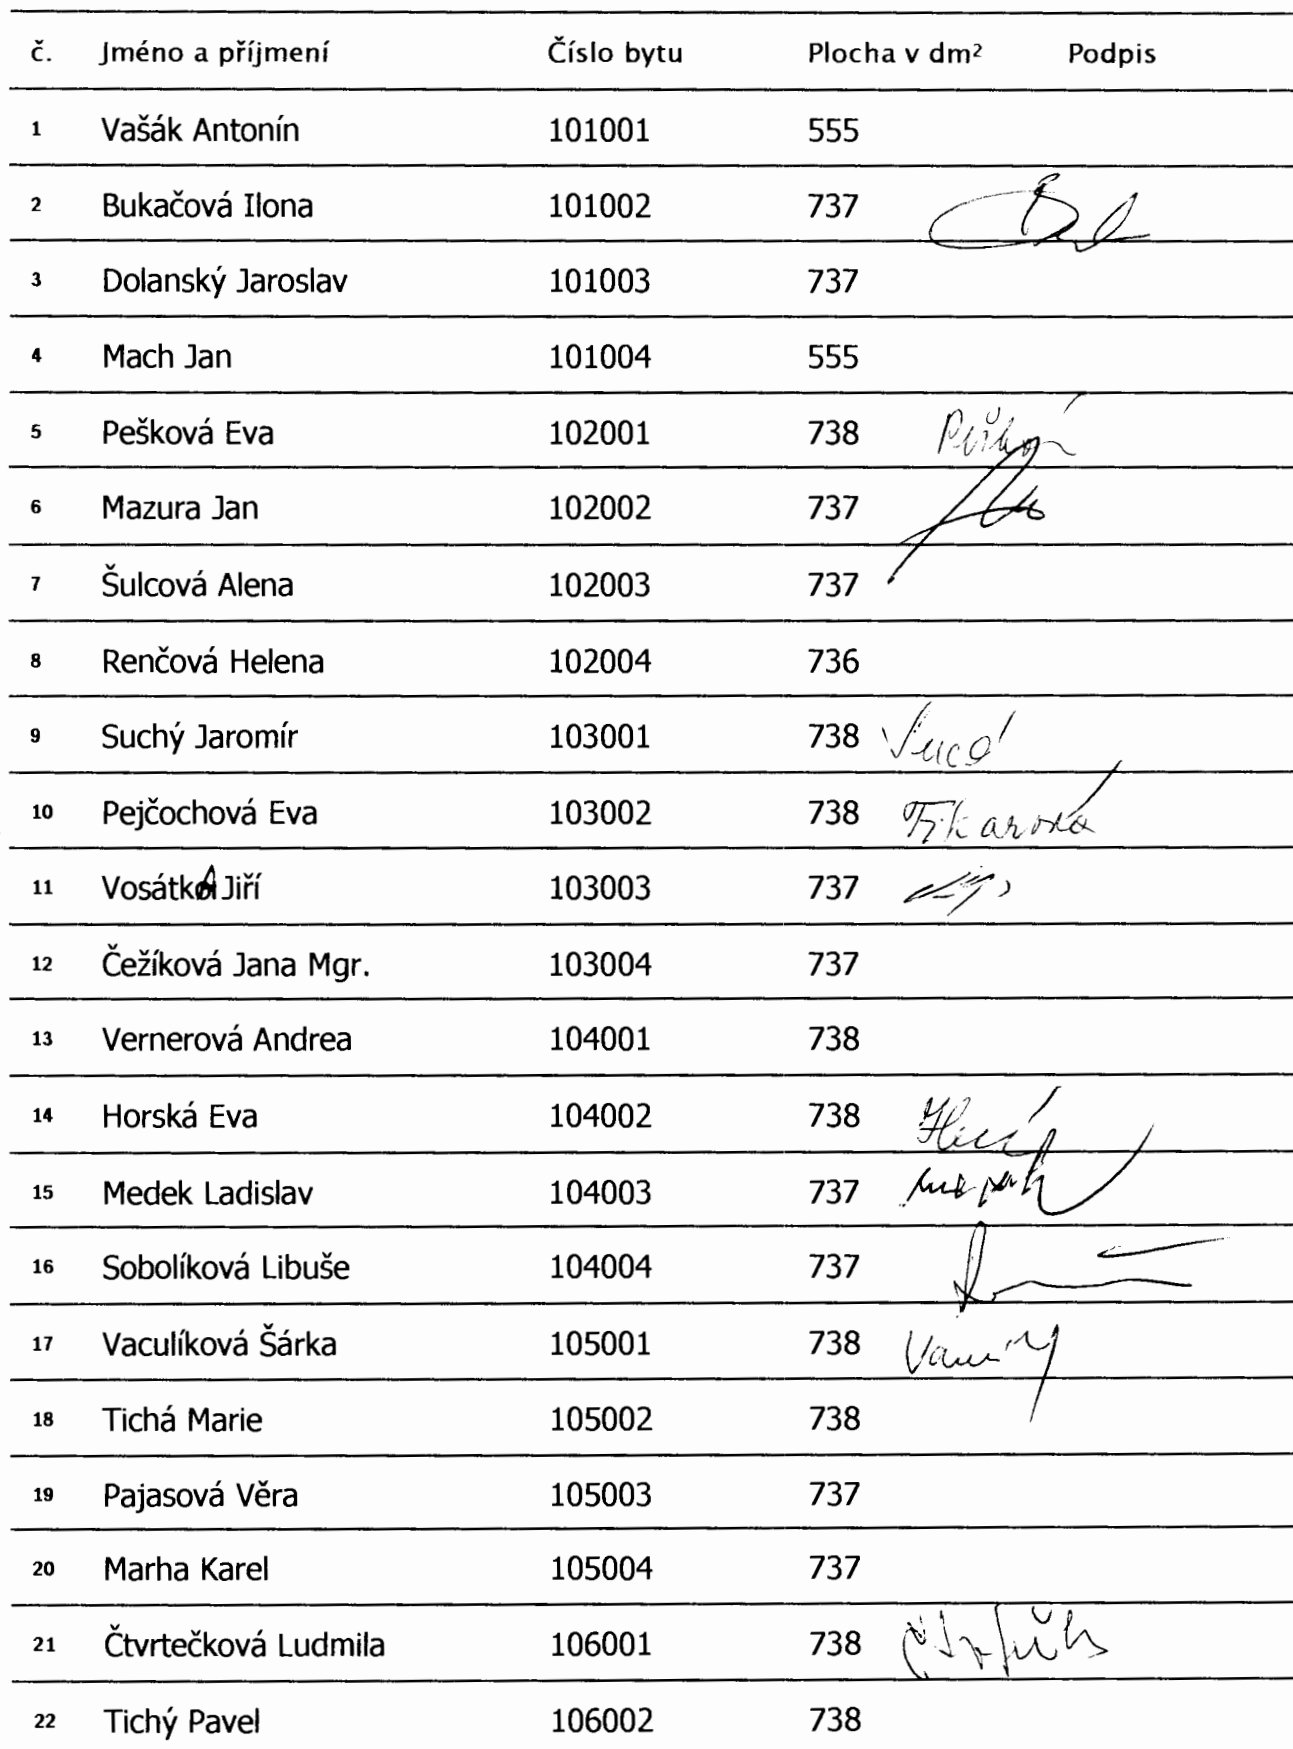 č. Jméno a příjmení Číslo bytu Plocha v dm² Podpis
1 Vašák Antonín 101001 555
2 Bukačová Ilona 101002 737
3 Dolanský Jaroslav 101003 737
4 Mach Jan 101004 555
5 Pešková Eva 102001 738
6 Mazura Jan 102002 737
7 Šulcová Alena 102003 737
8 Renčová Helena 102004 736
9 Suchý Jaromír 103001 738
10 Pejčochová Eva 103002 738
11 VosátkA Jiří 103003 737
12 Čežíková Jana Mgr. 103004 737
13 Vernerová Andrea 104001 738
14 Horská Eva 104002 738
15 Medek Ladislav 104003 737
16 Sobolíková Libuše 104004 737
17 Vaculíková Šárka 105001 738
18 Tichá Marie 105002 738
19 Pajasová Věra 105003 737
20 Marha Karel 105004 737
21 Čtvrtečková Ludmila 106001 738
22 Tichý Pavel 106002 738